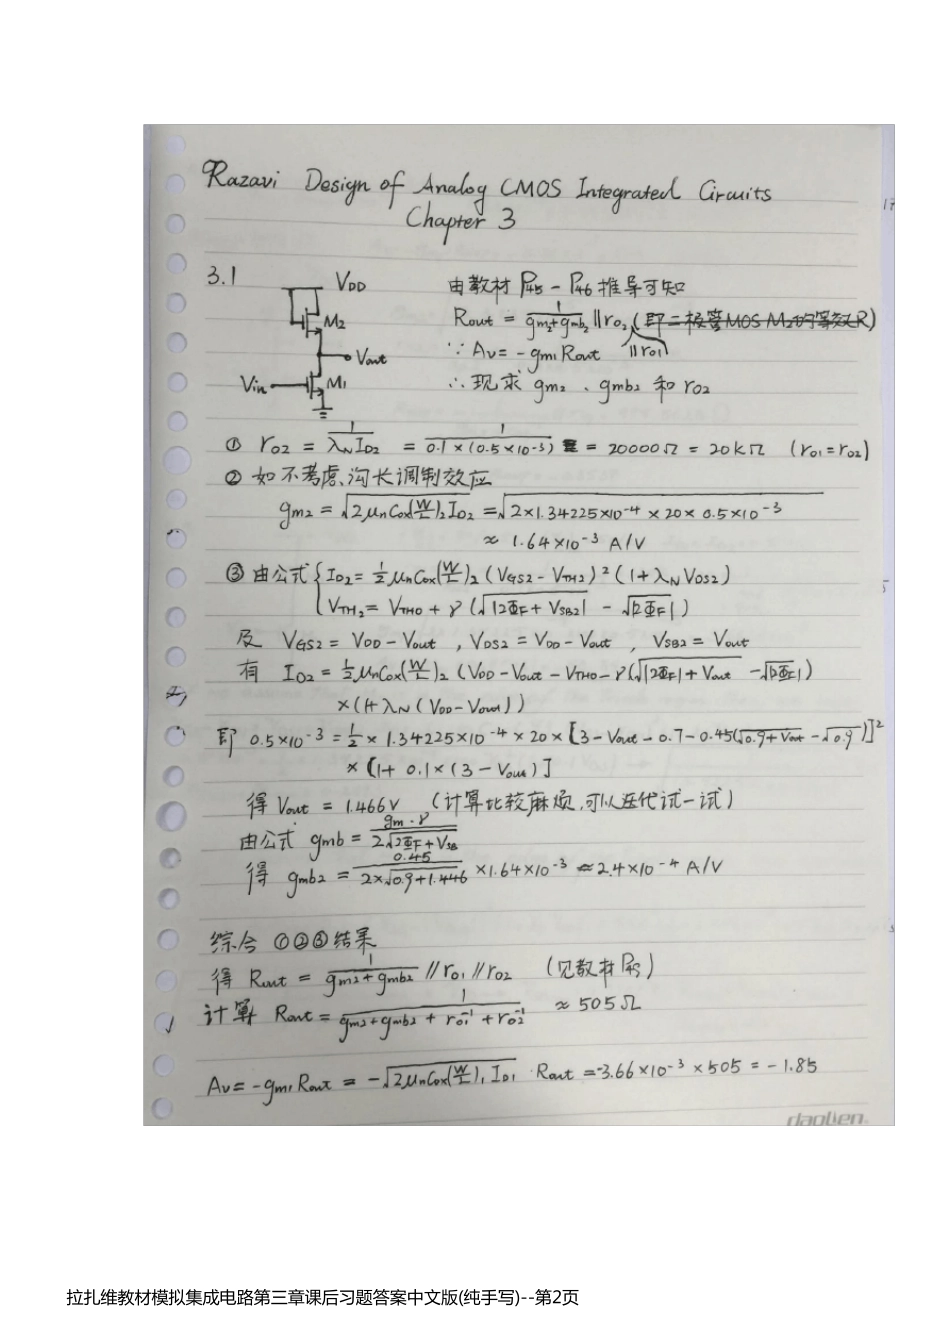 Razavi Design of Analog CMOS Integrated Circuits
Chapter 3
17
3.1
VDD
M2
Vout
Vin
M1
由教材 P45 - P46 推导可知
Rout = 1/(gm2+gmb2) // ro2 (即二极管MOS M2的等效R)
//ro1
∵ Av = - gm1 Rout
∴ 现求 gm2 、gmb2 和 ro2
① ro2 = 1/(λN ID2) = 1/(0.1×(0.5×10-3)) = 20000Ω = 20kΩ (ro1 = ro2)
② 如不考虑沟长调制效应
gm2 = √(2μnCox(W/L)2 ID2) = √(2×1.34225×10-4 × 20 × 0.5×10-3)
≈ 1.64×10-3 A/V
③ 由公式 { ID2 = 1/2 μnCox(W/L)2 (VGS2 - VTH2)2 (1+λN VDS2)
VTH2 = VTH0 + γ (√|2ΦF + VSB2| - √|2ΦF|)
5
及 VGS2 = VDD - Vout , VDS2 = VDD - Vout , VSB2 = Vout
有 ID2 = 1/2 μnCox(W/L)2 (VDD - Vout - VTH0 - γ(√|2ΦF|+Vout - √|2ΦF|)
×(1+λN(VDD-Vout))
即 0.5×10-3 = 1/2 × 1.34225×10-4 × 20 × [3 - Vout - 0.7 - 0.45(√0.9+Vout - √0.9)]2
× [1+ 0.1×(3 - Vout)]
得 Vout = 1.466V (计算比较麻烦,可以迭代试一试)
由公式 gmb = gm·γ/(2√2ΦF+VSB)
得 gmb2 = 0.45/(2×√0.9+1.446) ×1.64×10-3 ≈ 2.4×10-4 A/V
综合 ①②③ 结果
得 Rout = 1/(gm2+gmb2) // ro1 // ro2 (见教材 P45)
计算 Rout = 1/(gm2+gmb2 + ro1-1 + ro2-1) ≈ 505Ω
Av = -gm1 Rout = -√(2μnCox(W/L)1 ID1) · Rout = -3.66×10-3 × 505 = - 1.85
拉扎维教材模拟集成电路第三章课后习题答案中文版(纯手写)--第2页